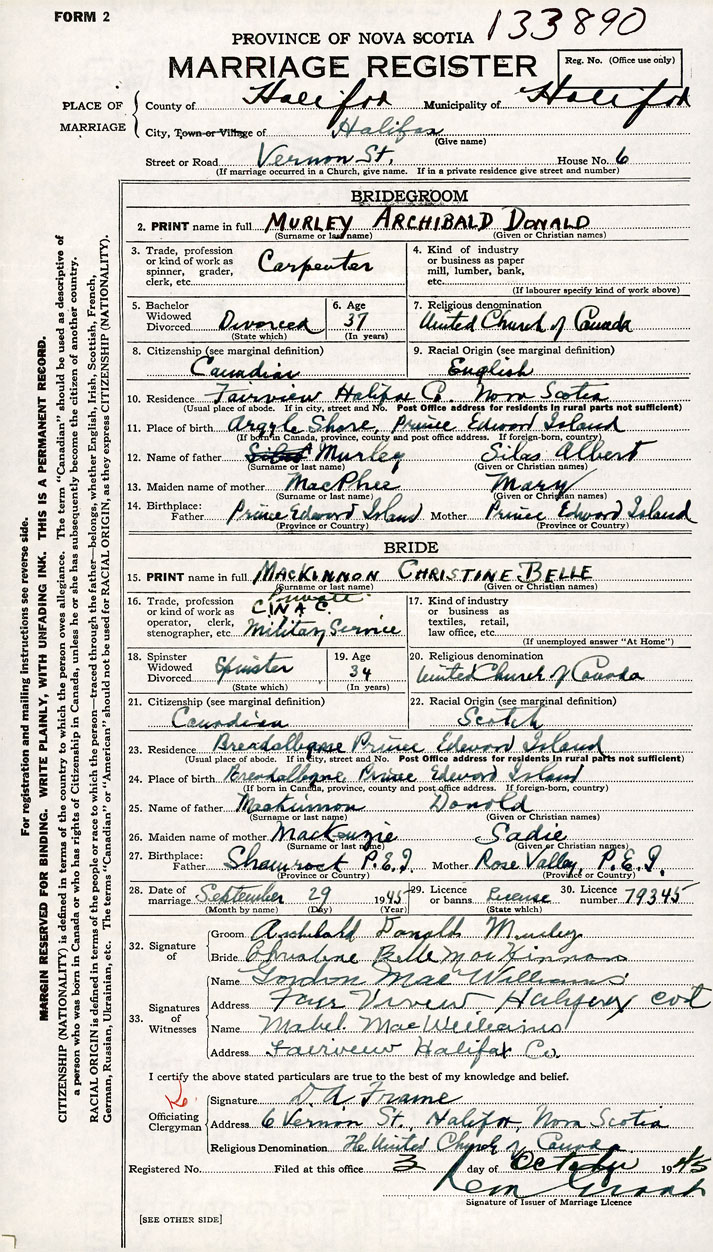 FORM 2
133890
PROVINCE OF NOVA SCOTIA
MARRIAGE REGISTER
Reg. No. (Office use only)
PLACE OF MARRIAGE
County of Halifax Municipality of Halifax
City, Town or Village of Halifax
(Give name)
Street or Road Vernon St. House No. 6
(If marriage occurred in a Church, give name. If in a private residence give street and number)
BRIDEGROOM
2. PRINT name in full MURLEY ARCHIBALD DONALD
(Surname or last name) (Given or Christian names)
3. Trade, profession or kind of work as spinner, grader, clerk, etc. Carpenter
4. Kind of industry or business as paper mill, lumber, bank, etc.
(If labourer specify kind of work above)
5. Bachelor Widowed Divorced Divorced
(State which)
6. Age 37
(In years)
7. Religious denomination
United Church of Canada
8. Citizenship (see marginal definition)
Canadian
9. Racial Origin (see marginal definition)
English
10. Residence Fairview Halifax Co. Nova Scotia
(Usual place of abode. If in city, street and No. Post Office address for residents in rural parts not sufficient)
11. Place of birth Argyle Shore, Prince Edward Island
(If born in Canada, province, county and post office address. If foreign-born, country)
12. Name of father Murley Silas Albert
(Surname or last name) (Given or Christian names)
13. Maiden name of mother MacPhee Mary
(Surname or last name) (Given or Christian names)
14. Birthplace: Father Prince Edward Island Mother Prince Edward Island
(Province or Country) (Province or Country)
BRIDE
15. PRINT name in full MACKINNON CHRISTINE BELLE
(Surname or last name) (Given or Christian names)
16. Trade, profession or kind of work as operator, clerk, stenographer, etc. Private C.W.A.C. Military Service
17. Kind of industry or business as textiles, retail, law office, etc.
(If unemployed answer "At Home")
18. Spinster Widowed Divorced Spinster
(State which)
19. Age 34
(In years)
20. Religious denomination
United Church of Canada
21. Citizenship (see marginal definition)
Canadian
22. Racial Origin (see marginal definition)
Scotch
23. Residence Breadalbane Prince Edward Island
(Usual place of abode. If in city, street and No. Post Office address for residents in rural parts not sufficient)
24. Place of birth Breadalbane Prince Edward Island
(If born in Canada, province, county and post office address. If foreign-born, country)
25. Name of father Mackinnon Donald
(Surname or last name) (Given or Christian names)
26. Maiden name of mother MacKenzie Sadie
(Surname or last name) (Given or Christian names)
27. Birthplace: Father Shamrock P.E.I. Mother Rose Valley, P.E.I.
(Province or Country) (Province or Country)
28. Date of marriage September 29 1945
(Month by name) (Day) (Year)
29. Licence or banns License
(State which)
30. Licence number 79345
32. Signature of
Groom Archibald Donald Murley
Bride Christine Belle MacKinnon
33. Signatures of Witnesses
Name Gordon MacWilliams
Address Fair Vivew Halifax
Name Mabel MacWilliams
Address Fairview Halifax Co.
I certify the above stated particulars are true to the best of my knowledge and belief.
Officiating Clergyman
Signature D. A. Frame
Address 6 Vernon St., Halifax, Nova Scotia
Religious Denomination The United Church of Canada
Registered No. Filed at this office 3 day of October 1945
Signature of Issuer of Marriage Licence
[SEE OTHER SIDE]
For registration and mailing instructions see reverse side.
MARGIN RESERVED FOR BINDING. WRITE PLAINLY, WITH UNFADING INK. THIS IS A PERMANENT RECORD.
CITIZENSHIP (NATIONALITY) is defined in terms of the country to which the person owes allegiance. The term "Canadian" should be used as descriptive of
a person who was born in Canada or who has rights of Citizenship in Canada, unless he or she has subsequently become the citizen of another country.
RACIAL ORIGIN is defined in terms of the people or race to which the person—traced through the father—belongs, whether English, Irish, Scottish, French,
German, Russian, Ukrainian, etc. The terms "Canadian" or "American" should not be used for RACIAL ORIGIN, as they express CITIZENSHIP (NATIONALITY).